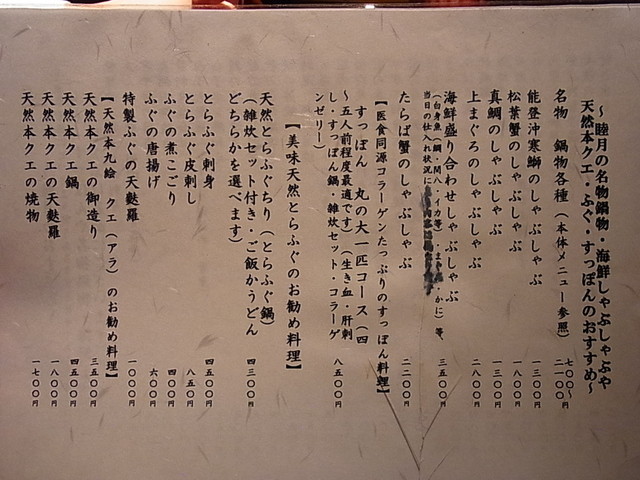 ～睦月の名物鍋物・海鮮しゃぶしゃぶや
天然本クエ・ふぐ・すっぽんのおすすめ～
名物 鍋物各種（本体メニュー参照）
七〇〇～
二一〇〇円
能登沖寒鰤のしゃぶしゃぶ 一三〇〇円
松葉蟹のしゃぶしゃぶ 一八〇〇円
真鯛のしゃぶしゃぶ 一三〇〇円
上まぐろのしゃぶしゃぶ 二八〇〇円
海鮮盛り合わせしゃぶしゃぶ 三五〇〇円
（白身魚（鯛・関八・イカ等）・まぐろ・かに）等、
当日の仕入れ状況に
たらば蟹のしゃぶしゃぶ 二二〇〇円
【医食同源コラーゲンたっぷりのすっぽん料理】
すっぽん 丸の大一匹コース（四
～五人前程度最適です）（生き血・肝刺
し・すっぽん鍋・雑炊セット・コラーゲ
ンゼリー） 八五〇〇円
【美味天然とらふぐのお勧め料理】
天然とらふぐちり（とらふぐ鍋）
（雑炊セット付き・ご飯かうどん
どちらかを選べます） 四三〇〇円
とらふぐ刺身 四五〇〇円
とらふぐ皮刺し 八五〇円
ふぐの煮こごり 四〇〇円
ふぐの唐揚げ 六〇〇円
特製ふぐの天麩羅 一〇〇〇円
【天然本九絵 クエ（アラ）のお勧め料理】
天然本クエの御造り 三五〇〇円
天然本クエ鍋 四五〇〇円
天然本クエの天麩羅 一八〇〇円
天然本クエの焼物 一七〇〇円